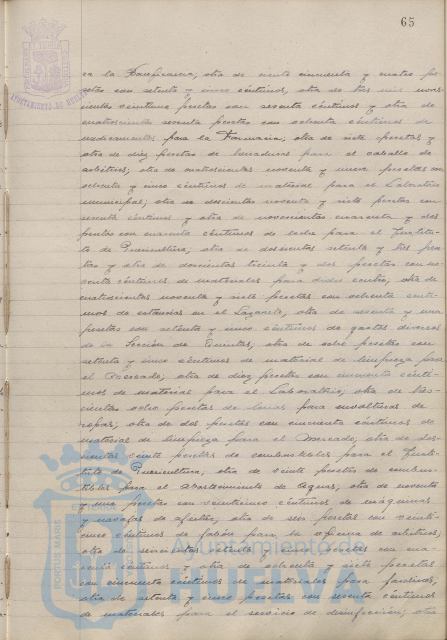 65
AYUNTAMIENTO DE HUELVA
en la Panificadora; otra de ciento cincuenta y cuatro pe-
setas con setenta y cinco céntimos, otra de tres mil nove-
cientas veintiuna pesetas con sesenta céntimos y otra de
cuatrocientas sesenta pesetas con ochenta céntimos de
medicamentos para la Farmacia; otra de siete pesetas y
otra de diez pesetas de herraduras para el caballo de
arbitrios; otra de cuatrocientas noventa y nueve pesetas con
ochenta y cinco céntimos de material para el Laboratorio
municipal; otra de doscientas noventa y siete pesetas con
sesenta céntimos y otra de novecientas cuarenta y dos
pesetas con cuarenta céntimos de leche para el Institu-
to de Puericultura, otra de doscientas setenta y tres pese-
tas y otra de doscientas treinta y dos pesetas con no-
venta céntimos de materiales para dicho centro, otra de
cuatrocientas noventa y siete pesetas con ochenta cénti-
mos de estancias en el Lazareto, otra de sesenta y una
pesetas con setenta y cinco céntimos de gastos diversos
de la Sección de Quintas; otra de ocho pesetas con
setenta y cinco céntimos de material de limpieza para
el Mercado; otra de diez pesetas con cincuenta cénti-
mos de material para el Laboratorio; otra de tres-
cientas ocho pesetas de para envolturas de
ropas; otra de dos pesetas con cincuenta céntimos de
material de limpieza para el Mercado, otra de dos-
cientas veinte pesetas de combustibles para el Insti-
tuto de Puericultura, otra de veinte pesetas de combus-
tibles para el Abastecimiento de Aguas; otra de noventa
y una pesetas con veinticinco céntimos de máquinas
y navajas de afeitar, otra de seis pesetas con veinti-
cinco céntimos de jabón para la oficina de arbitrios;
otra de setenta y cinco pesetas con cua-
renta céntimos y otra de ochenta y siete pesetas
con cincuenta céntimos de materiales para farolas,
otra de setenta y cinco pesetas con sesenta céntimos
de materiales para el servicio de desinfección; otra
Ayuntamiento de
HUELVA
PORTUS MARIS